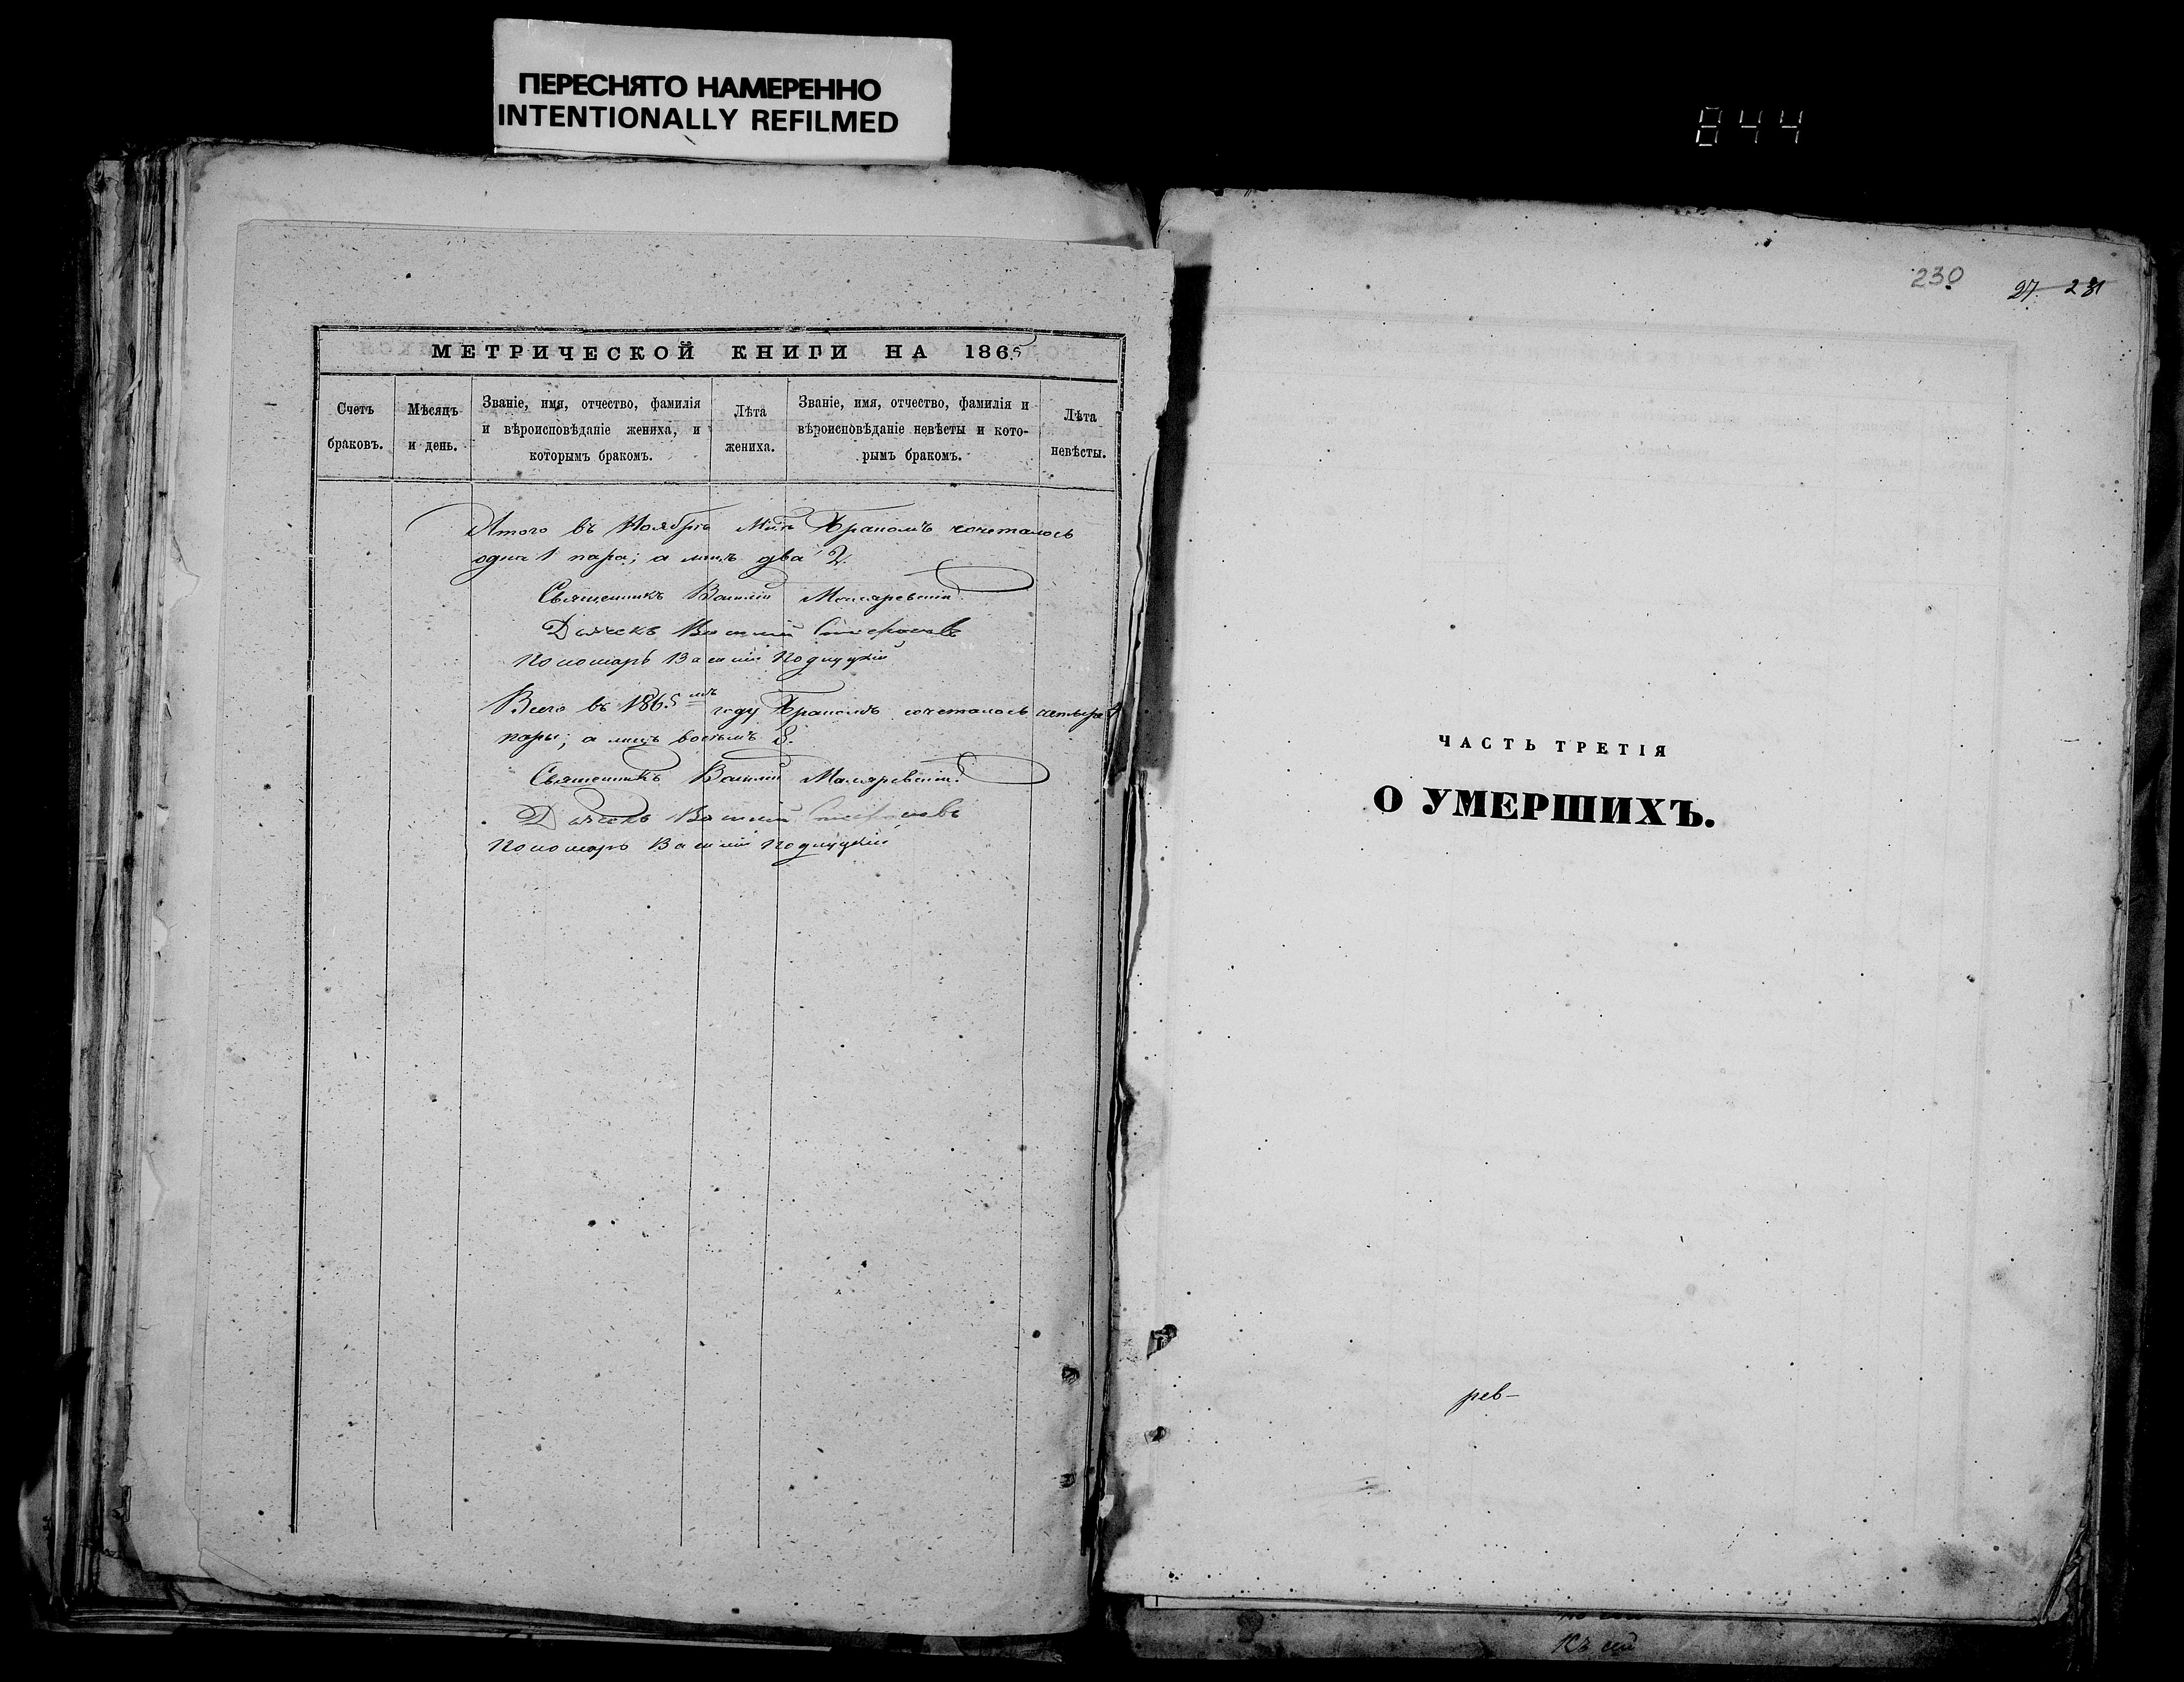 ПЕРЕСНЯТО НАМЕРЕННО
INTENTIONALLY REFILMED
844
МЕТРИЧЕСКОЙ КНИГИ НА 1865
Счетъ браковъ.
Мѣсяцъ и день.
Званіе, имя, отчество, фамилія
и вѣроисповѣданіе жениха, и
которымъ бракомъ.
Лѣта жениха.
Званіе, имя, отчество, фамилія и
вѣроисповѣданіе невѣсты и кото-
рымъ бракомъ.
Лѣта невѣсты.
Итого въ Ноябрѣ М-цѣ бракомъ сочеталось
одна 1 пара; а лицъ два 2.
Священникъ Василій Маляревскій
Дьячекъ Василій
Пономарь Василій
Всего въ 1865мъ году бракомъ сочеталось четыре 4
пары; а лицъ восемь 8.
Священникъ Василій Маляревскій
Дьячекъ Василій
Пономарь Василій
230
27 231
ЧАСТЬ ТРЕТІЯ
О УМЕРШИХЪ.
рев-